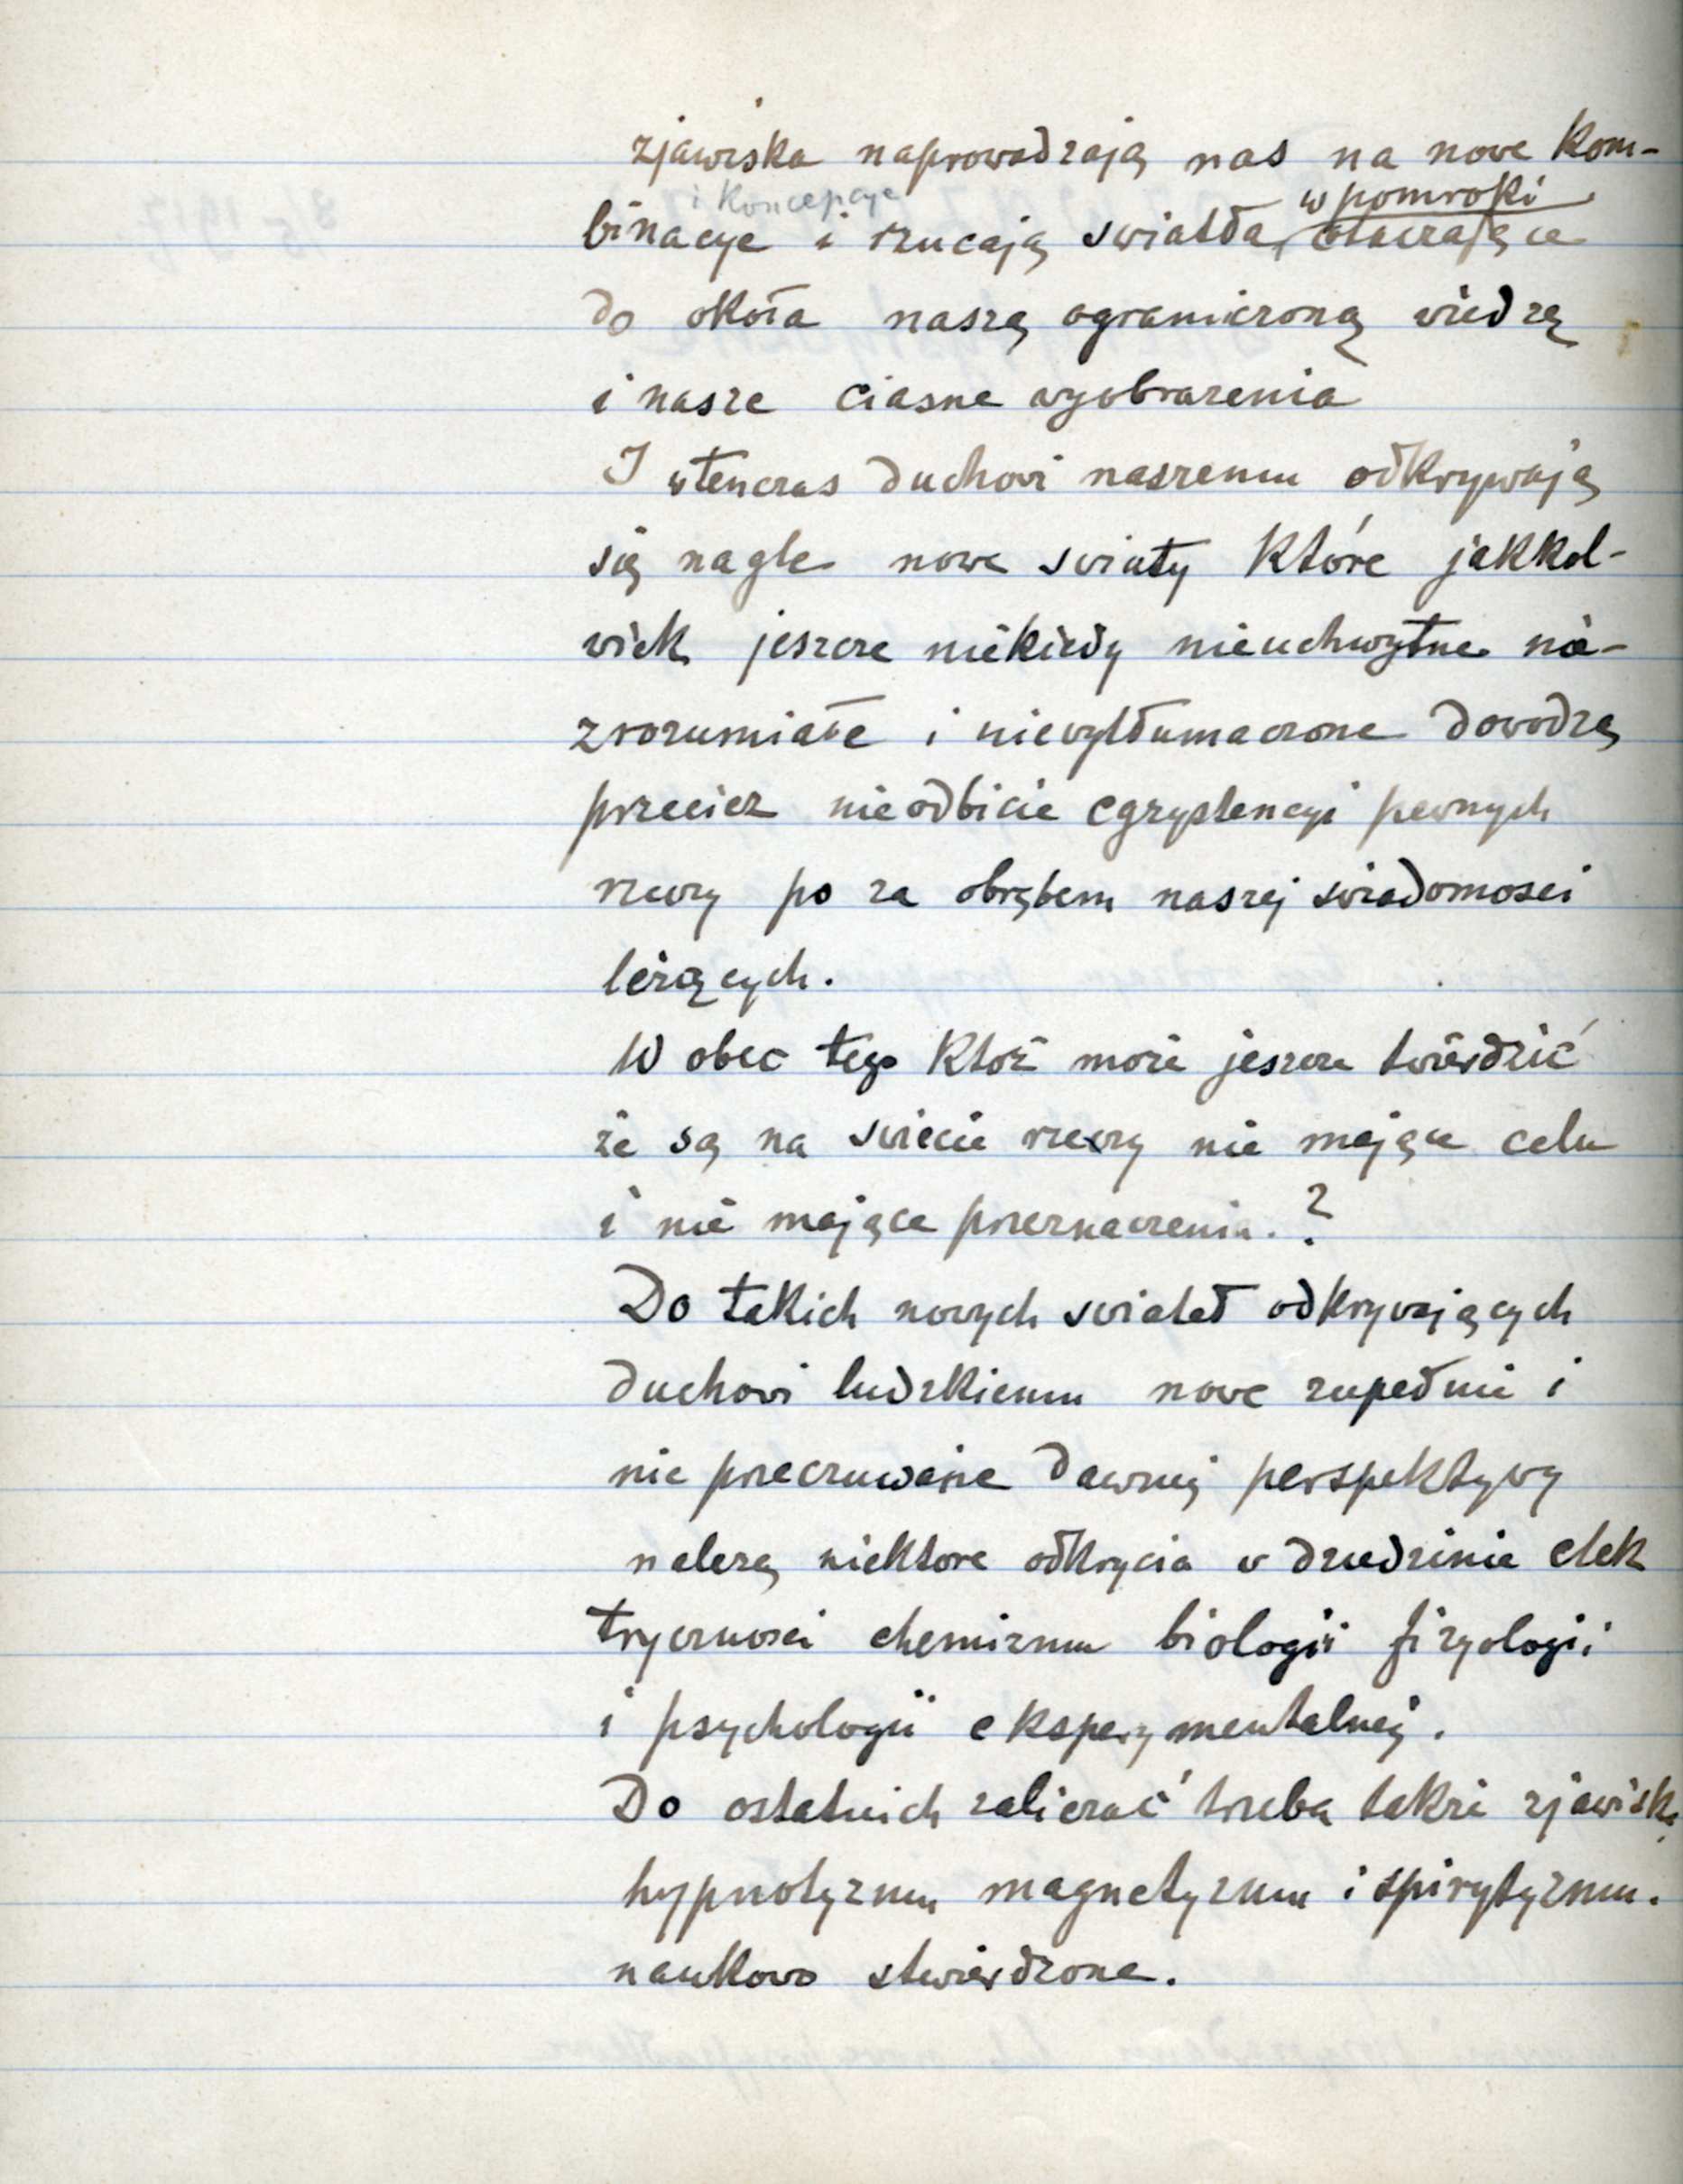 zjawiska naprowadzają nas na nowe kom-
i koncepcye w pomroki
binacye i rzucają swiatła, otaczające
do okoła naszą ograniczoną wiedzę
i nasze ciasne wyobrazenia
I wtenczas duchowi naszemu odkrywają
się nagle nowe swiaty które jakkol-
wiek jeszcze niekiedy nieuchwytne nie-
zrozumiałe i niewytłumaczone dowodzą
przeciez nieodbicie egzystencyi pewnych
rzeczy po za obrębem naszej swiadomosci
leżących.
W obec tego ktoż może jeszcze twierdzić
że są na swiecie rzeczy nie mające celu
i nie mające przeznaczenia. ?
Do takich nowych swiateł odkrywających
duchowi ludzkiemu nowe zupełnie i
nie przeczuwane dawniej perspektywy
nalezą niektore odkrycia w dziedzinie elek
trycznosci chemizmu biologii fizyologii
i psychologii eksperymentalnej.
Do ostatnich zaliczać trzeba także zjawiska
hypnotyzmu magnetyzmu i spirytyzmu.
naukowo stwierdzone.